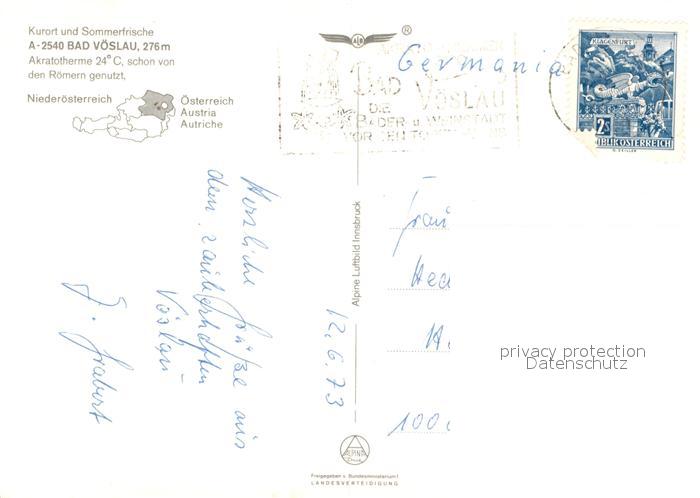 Kurort und Sommerfrische
A-2540 BAD VÖSLAU, 276 m
Akratotherme 24° C, schon von
den Römern genutzt.
Niederösterreich
Österreich
Austria
Autriche
®
Germania
BAD
VÖSLAU
DIE
BÄDER- u. WEINSTADT
VOR DEN TOREN
KLAGENFURT
2s
REPUBLIK ÖSTERREICH
Herzliche Grüße aus
dem zauberhaften
Vöslau
J. Grabert
12.6.73
Alpine Luftbild Innsbruck
Frau
Hed
H.
100
privacy protection
Datenschutz
ALPINE
Freigegeben v. Bundesministerium f.
LANDESVERTEIDIGUNG